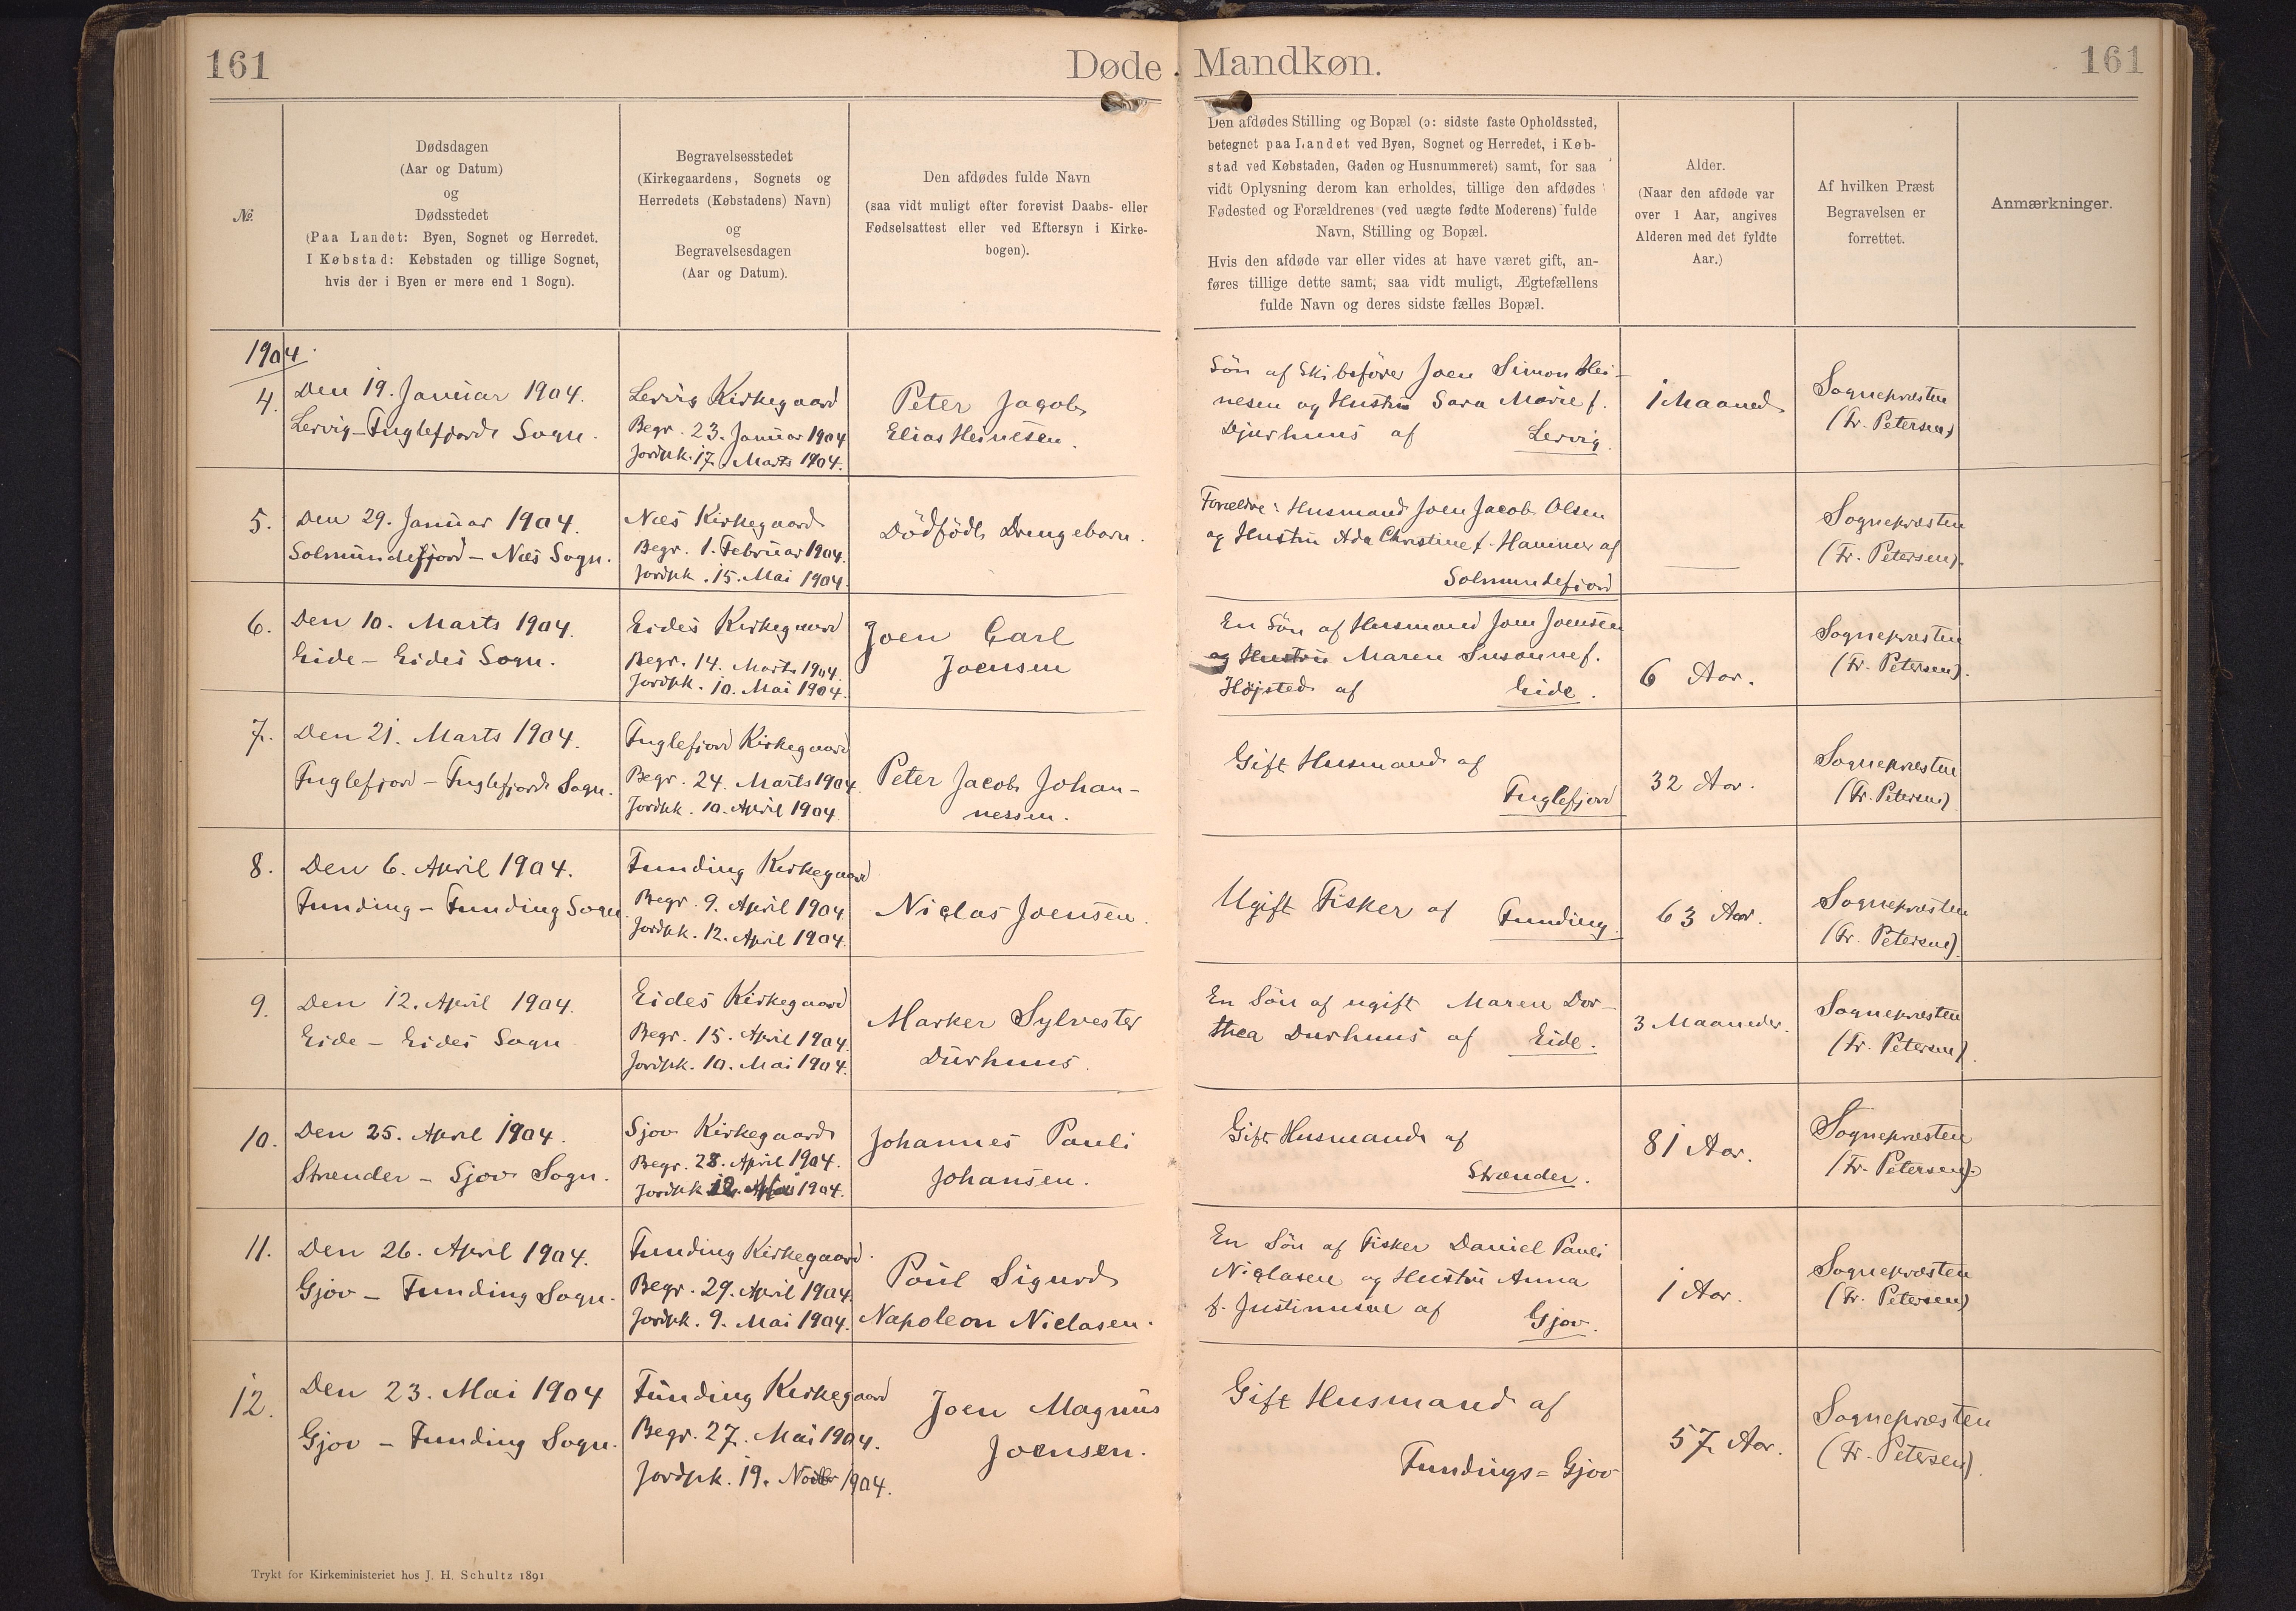 161
Døde. Mandkøn.
161
№.
Dødsdagen
(Aar og Datum)
og
Dødsstedet
(Paa Landet: Byen, Sognet og Herredet.
I Købstad: Købstaden og tillige Sognet,
hvis der i Byen er mere end 1 Sogn).
Begravelsesstedet
(Kirkegaardens, Sognets og
Herredets (Købstadens) Navn)
og
Begravelsesdagen
(Aar og Datum).
Den afdødes fulde Navn
(saa vidt muligt efter forevist Daabs- eller
Fødselsattest eller ved Eftersyn i Kirke-
bogen).
Den afdødes Stilling og Bopæl (ɔ: sidste faste Opholdssted,
betegnet paa Landet ved Byen, Sognet og Herredet, i Køb-
stad ved Købstaden, Gaden og Husnummeret) samt, for saa
vidt Oplysning derom kan erholdes, tillige den afdødes
Fødested og Forældrenes (ved uægte fødte Moderens) fulde
Navn, Stilling og Bopæl.
Hvis den afdøde var eller vides at have været gift, an-
føres tillige dette samt, saa vidt muligt, Ægtefællens
fulde Navn og deres sidste fælles Bopæl.
Alder.
(Naar den afdøde var
over 1 Aar, angives
Alderen med det fyldte
Aar.)
Af hvilken Præst
Begravelsen er
forrettet.
Anmærkninger.
1904.
4.
Den 19. Januar 1904.
Lervig-Fuglefjords Sogn.
Lervig Kirkegaard
Begr. 23. Januar 1904
Jordpk. 17. Marts 1904.
Peter Jacob
Elias Heinesen.
Søn af Skibsfører Joen Simon Hei-
nesen og Hustru Sara Marie f.
Djurhuus af Lervig.
1 Maaned
Sognepræsten
(Fr. Petersen)
5.
Den 29. Januar 1904.
Solmundefjord - Næs Sogn.
Næs Kirkegaard
Begr. 1. Februar 1904.
Jordpk. 15. Mai 1904.
Dödfödt Drengebarn.
Forældre: Husmand Joen Jacob Olsen
og Hustru Ada Christine f. Hammer af
Solmundefjord
Sognepræsten
(Fr. Petersen).
6.
Den 10. Marts 1904.
Eide - Eides Sogn.
Eides Kirkegaard
Begr. 14. Marts 1904.
Jordpk. 10. Mai 1904.
Joen Carl
Joensen
En Søn af Husmand Joen Joensen
og Hustru Maren Susanne f.
Højsted af Eide.
6 Aar.
Sognepræsten
(Fr. Petersen).
7.
Den 21. Marts 1904.
Fuglefjord - Fuglefjords Sogn.
Fuglefjord Kirkegaard
Begr. 24. Marts 1904.
Jordpk. 10. April 1904.
Peter Jacob Johan-
nessen.
Gift Husmand af
Fuglefjord
32 Aar.
Sognepræsten
(Fr. Petersen)
8.
Den 6. April 1904.
Funding - Funding Sogn.
Funding Kirkegaard
Begr. 9. April 1904
Jordpk. 12. April 1904.
Niclas Joensen.
Ugift Fisker af Funding.
63 Aar.
Sognepræsten
(Fr. Petersen).
9.
Den 12. April 1904.
Eide - Eides Sogn
Eides Kirkegaard
Begr. 15. April 1904.
Jordpk. 10. Mai 1904.
Marker Sylvester
Durhuus.
En Søn af ugift Maren Dor-
thea Durhuus af Eide.
3 Maaneder.
Sognepræsten
(Fr. Petersen).
10.
Den 25. April 1904.
Strænder - Sjov Sogn.
Sjov Kirkegaard
Begr. 28. April 1904.
Jordpk. 1904.
Johannes Pauli
Johansen.
Gift Husmand af
Strænder.
81 Aar.
Sognepræsten
(Fr. Petersen).
11.
Den 26. April 1904.
Gjov - Funding Sogn.
Funding Kirkegaard.
Begr. 29. April 1904.
Jordpk. 9. Mai 1904.
Poul Sigurd
Napoleon Niclasen.
En Søn af Fisker Daniel Pauli
Niclasen og Hustru Anna
f. Justinusen af Gjov.
1 Aar.
Sognepræsten
(Fr. Petersen)
12.
Den 23. Mai 1904
Gjov - Funding Sogn.
Funding Kirkegaard
Begr. 27. Mai 1904.
Jordpk. 19. Novbr 1904.
Joen Magnus
Joensen.
Gift Husmand af
Fundings=Gjov
57 Aar.
Sognepræsten
(Fr. Petersen).
Trykt for Kirkeministeriet hos J. H. Schultz 1891